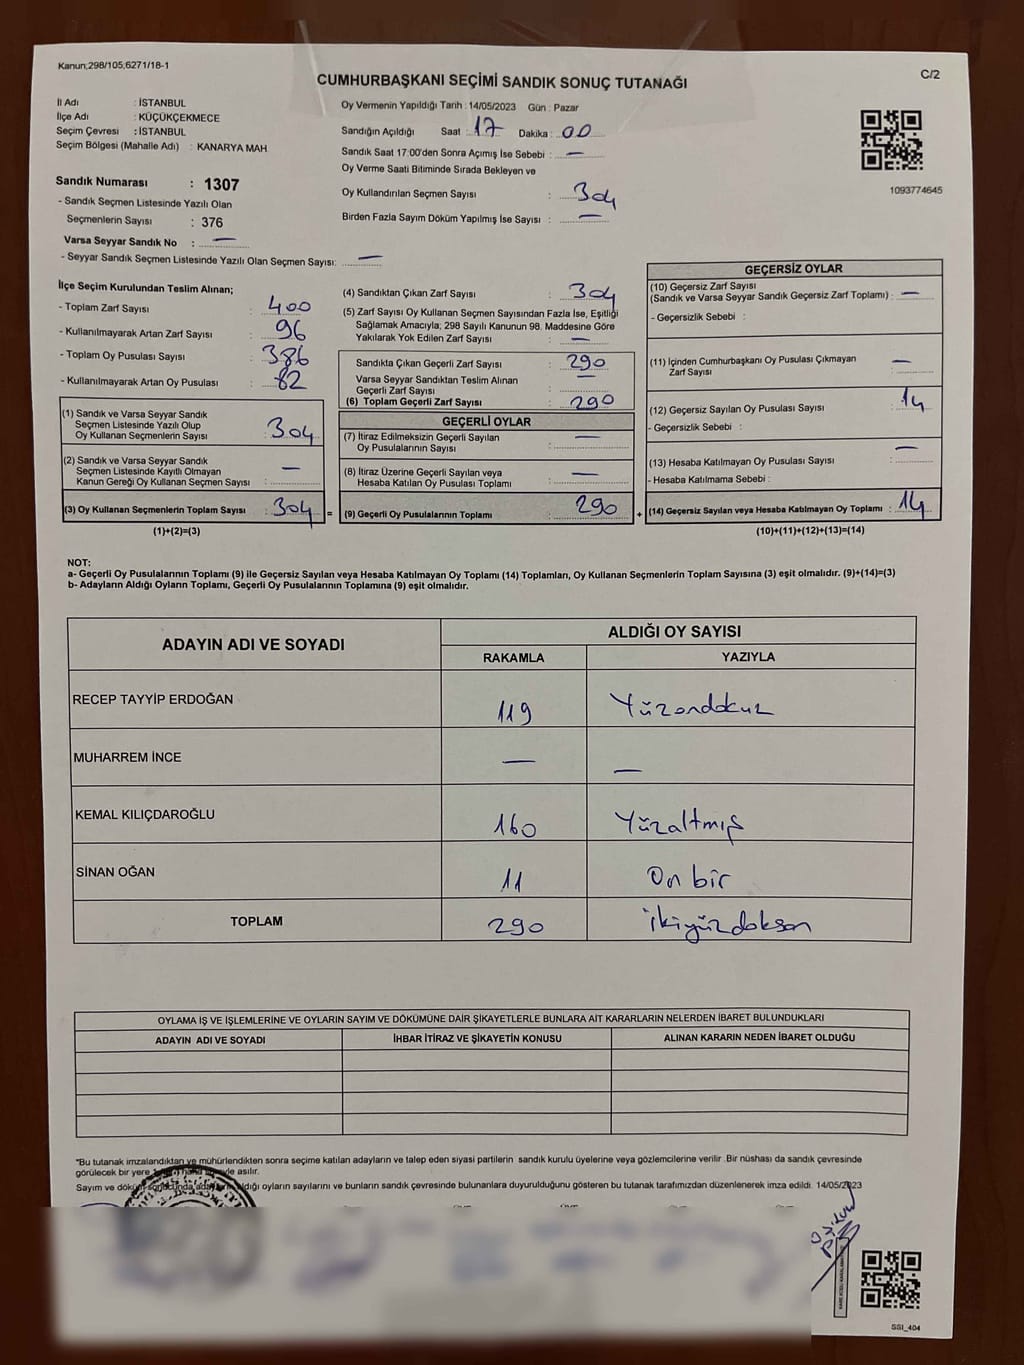 Kanun;298/105;6271/18-1
C/2
CUMHURBAŞKANI SEÇİMİ SANDIK SONUÇ TUTANAĞI
İl Adı : İSTANBUL
İlçe Adı : KÜÇÜKÇEKMECE
Seçim Çevresi : İSTANBUL
Seçim Bölgesi (Mahalle Adı) : KANARYA MAH
Sandık Numarası : 1307
- Sandık Seçmen Listesinde Yazılı Olan
Seçmenlerin Sayısı : 376
Varsa Seyyar Sandık No : —
- Seyyar Sandık Seçmen Listesinde Yazılı Olan Seçmen Sayısı: —
Oy Vermenin Yapıldığı Tarih : 14/05/2023 Gün : Pazar
Sandığın Açıldığı Saat : 17 Dakika : 00
Sandık Saat 17:00'den Sonra Açımış İse Sebebi : —
Oy Verme Saati Bitiminde Sırada Bekleyen ve
Oy Kullandırılan Seçmen Sayısı : 304
Birden Fazla Sayım Döküm Yapılmış İse Sayısı : —
1093774645
İlçe Seçim Kurulundan Teslim Alınan;
- Toplam Zarf Sayısı : 400
- Kullanılmayarak Artan Zarf Sayısı : 96
- Toplam Oy Pusulası Sayısı : 386
- Kullanılmayarak Artan Oy Pusulası : 82
(1) Sandık ve Varsa Seyyar Sandık
Seçmen Listesinde Yazılı Olup
Oy Kullanan Seçmenlerin Sayısı : 304
(2) Sandık ve Varsa Seyyar Sandık
Seçmen Listesinde Kayıtlı Olmayan
Kanun Gereği Oy Kullanan Seçmen Sayısı : —
(3) Oy Kullanan Seçmenlerin Toplam Sayısı : 304 =
(1)+(2)=(3)
(4) Sandıktan Çıkan Zarf Sayısı : 304
(5) Zarf Sayısı Oy Kullanan Seçmen Sayısından Fazla İse, Eşitliği
Sağlamak Amacıyla; 298 Sayılı Kanunun 98. Maddesine Göre
Yakılarak Yok Edilen Zarf Sayısı : —
Sandıkta Çıkan Geçerli Zarf Sayısı : 290
Varsa Seyyar Sandıktan Teslim Alınan
Geçerli Zarf Sayısı : —
(6) Toplam Geçerli Zarf Sayısı : 290
GEÇERLİ OYLAR
(7) İtiraz Edilmeksizin Geçerli Sayılan
Oy Pusulalarının Sayısı : —
(8) İtiraz Üzerine Geçerli Sayılan veya
Hesaba Katılan Oy Pusulası Toplamı : —
(9) Geçerli Oy Pusulalarının Toplamı : 290 +
GEÇERSİZ OYLAR
(10) Geçersiz Zarf Sayısı
(Sandık ve Varsa Seyyar Sandık Geçersiz Zarf Toplamı) : —
- Geçersizlik Sebebi :
(11) İçinden Cumhurbaşkanı Oy Pusulası Çıkmayan
Zarf Sayısı : —
(12) Geçersiz Sayılan Oy Pusulası Sayısı : 14
- Geçersizlik Sebebi :
(13) Hesaba Katılmayan Oy Pusulası Sayısı : —
- Hesaba Katılmama Sebebi :
(14) Geçersiz Sayılan veya Hesaba Katılmayan Oy Toplamı : 14
(10)+(11)+(12)+(13)=(14)
NOT:
a- Geçerli Oy Pusulalarının Toplamı (9) ile Geçersiz Sayılan veya Hesaba Katılmayan Oy Toplamı (14) Toplamları, Oy Kullanan Seçmenlerin Toplam Sayısına (3) eşit olmalıdır. (9)+(14)=(3)
b- Adayların Aldığı Oyların Toplamı, Geçerli Oy Pusulalarının Toplamına (9) eşit olmalıdır.
ADAYIN ADI VE SOYADI ALDIĞI OY SAYISI
RAKAMLA YAZIYLA
RECEP TAYYİP ERDOĞAN 119 Yüzondokuz
MUHARREM İNCE — —
KEMAL KILIÇDAROĞLU 160 Yüzaltmış
SİNAN OĞAN 11 On bir
TOPLAM 290 İkiyüzdoksan
OYLAMA İŞ VE İŞLEMLERİNE VE OYLARIN SAYIM VE DÖKÜMÜNE DAİR ŞİKAYETLERLE BUNLARA AİT KARARLARIN NELERDEN İBARET BULUNDUKLARI
ADAYIN ADI VE SOYADI İHBAR İTİRAZ VE ŞİKAYETİN KONUSU ALINAN KARARIN NEDEN İBARET OLDUĞU
*Bu tutanak imzalandıktan ve mühürlendikten sonra seçime katılan adayların ve talep eden siyasi partilerin sandık kurulu üyelerine veya gözlemcilerine verilir .Bir nüshası da sandık çevresinde
görülecek bir yere asılır.
Sayım ve döküm sonucunda oyların sayılarını ve bunların sandık çevresinde bulunanlara duyurulduğunu gösteren bu tutanak tarafımızdan düzenlenerek imza edildi. 14/05/2023
SSI_404